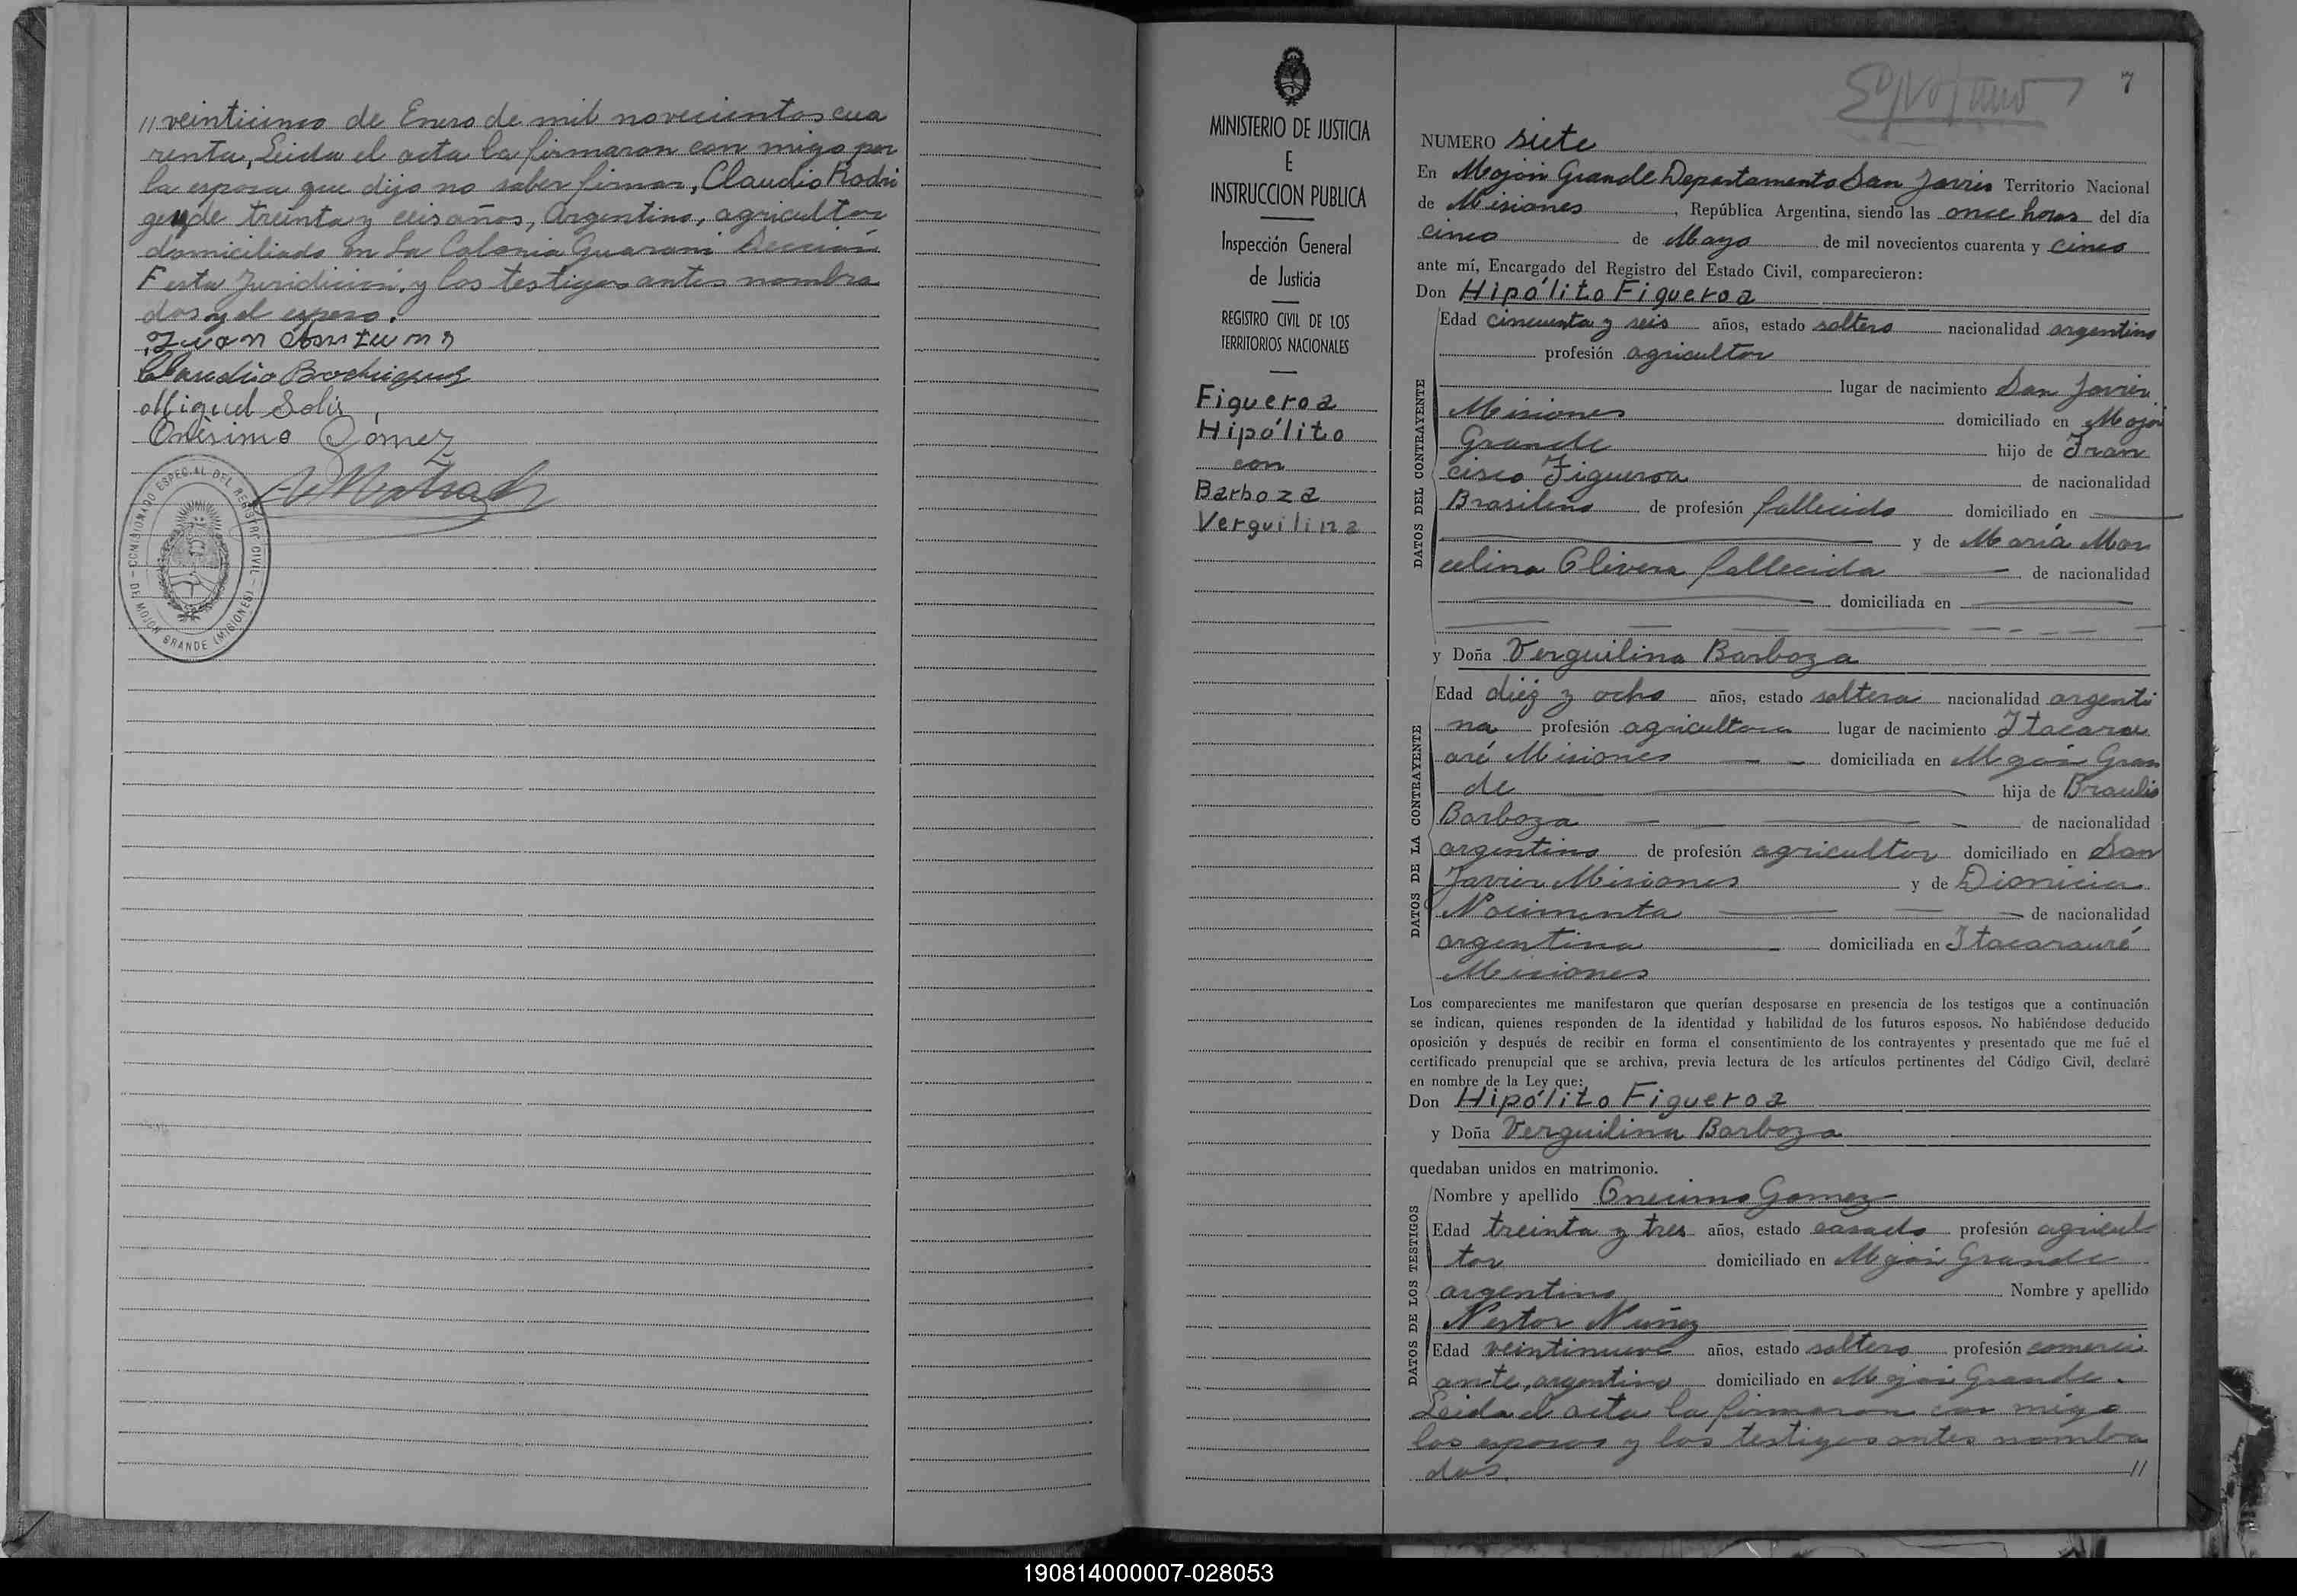 // veinticinco de Enero de mil novecientos cua
renta, Leida el acta la firmaron con migo por
la esposa que dijo no saber firmar, Claudio Rodri
guez de treinta y seis años, Argentino, agricultor
domiciliado en la Colonia Guarani Sección
F esta Juridición, y los testigos antes nombra
dos y el esposo.
Juan Antun
Claudio Rodriguez
Miguel Solis
Onésimo Gómez
COMISIONADO ESPECIAL DEL REGISTRO CIVIL
DE MOJON GRANDE (MISIONES)
MINISTERIO DE JUSTICIA
E
INSTRUCCION PUBLICA
Inspección General
de Justicia
REGISTRO CIVIL DE LOS
TERRITORIOS NACIONALES
Figueroa
Hipólito
con
Barboza
Verguilina
7
NUMERO siete
En Mojón Grande Departamento San Javier Territorio Nacional
de Misiones, República Argentina, siendo las once horas del día
cinco de Mayo de mil novecientos cuarenta y cinco
ante mí, Encargado del Registro del Estado Civil, comparecieron:
Don Hipólito Figueroa
DATOS DEL CONTRAYENTE
Edad cincuenta y seis años, estado soltero nacionalidad argentino
profesión agricultor
lugar de nacimiento San Javier
Misiones domiciliado en Mojón
Grande hijo de Fran
cisco Figueroa de nacionalidad
Brasileno de profesión fallecido domiciliado en
y de María Mar
celina Olivera fallecida de nacionalidad
domiciliada en
y Doña Verguilina Barboza
DATOS DE LA CONTRAYENTE
Edad diéz y ocho años, estado soltera nacionalidad argenti
na profesión agricultora lugar de nacimiento Itacaru
aré Misiones domiciliada en Mojón Gran
de hija de Braulio
Barboza de nacionalidad
argentino de profesión agricultor domiciliado en San
Javier Misiones y de Dionicia
Nocimenta de nacionalidad
argentina domiciliada en Itacarauré
Misiones
Los comparecientes me manifestaron que querían desposarse en presencia de los testigos que a continuación
se indican, quienes responden de la identidad y habilidad de los futuros esposos. No habiéndose deducido
oposición y después de recibir en forma el consentimiento de los contrayentes y presentado que me fué el
certificado prenupcial que se archiva, previa lectura de los artículos pertinentes del Código Civil, declaré
en nombre de la Ley que:
Don Hipólito Figueroa
y Doña Verguilina Barboza
quedaban unidos en matrimonio.
DATOS DE LOS TESTIGOS
Nombre y apellido Onecimo Gomez
Edad treinta y tres años, estado casado profesión agricul
tor domiciliado en Mojón Grande
argentino Nombre y apellido
Nestor Nuñez
Edad veintinueve años, estado soltero profesión comerci
ante, argentino domiciliado en Mojón Grande.
Leida el acta la firmaron con migo
los esposos y los testigos antes nombra
dos. //
190814000007-028053